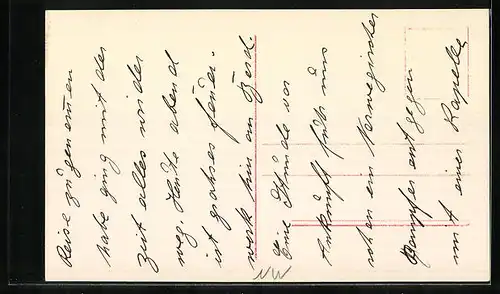 Reise zugenomen
habe ging mit der
zeit alles wider
weg. Heute abend
ist grohses feuer-
werk hir an Bord.
Eine Stunde vor
Ankunft fuhr uns
schon ein Norwegischer
Dampfer entgegen
mit einer Kapelle